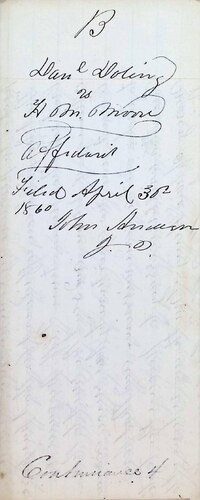 B
Danl Doling
vs
H M Moore
Affidavit
Filed April 30th
1860
John
J.P.
Continuance 4